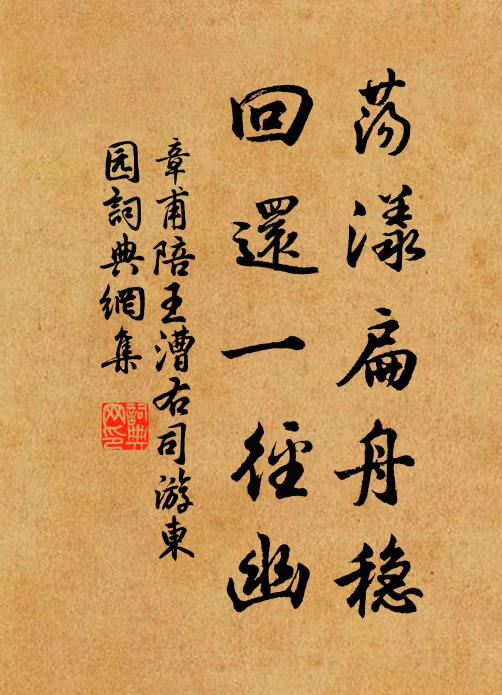 荡漾扁舟稳
回還一徑幽
章甫陪王漕右司游東
园詞典網集
詞典网印